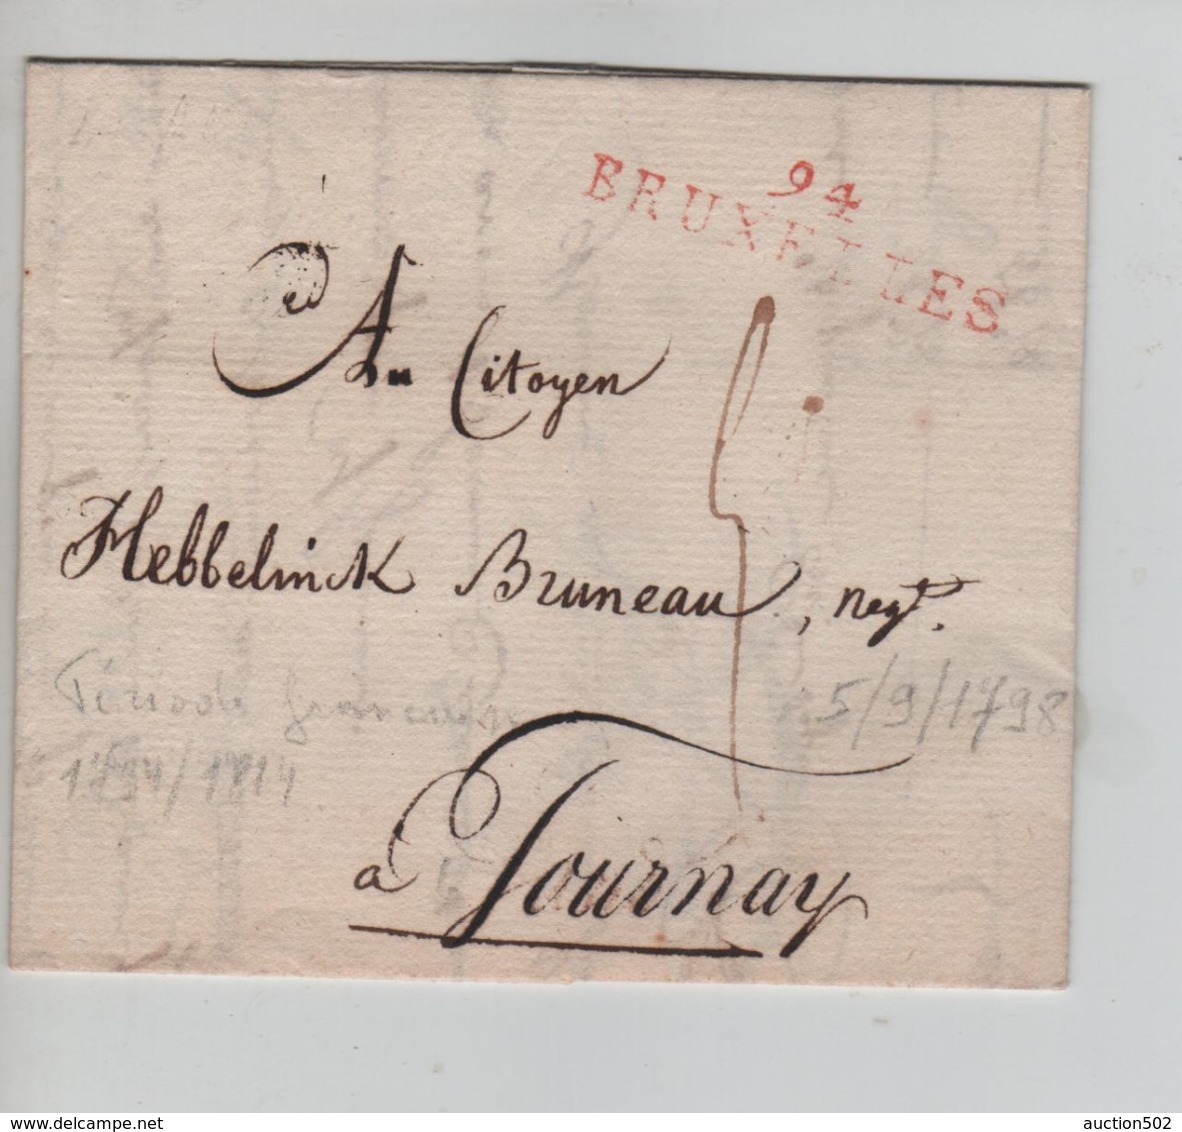 94
BRUXELLES
Au Citoyen
Hebbelinck Bruneau, negt.
Période française
5/9/1798
1794/1814
a Tournay
www.delcampe.net
auction502